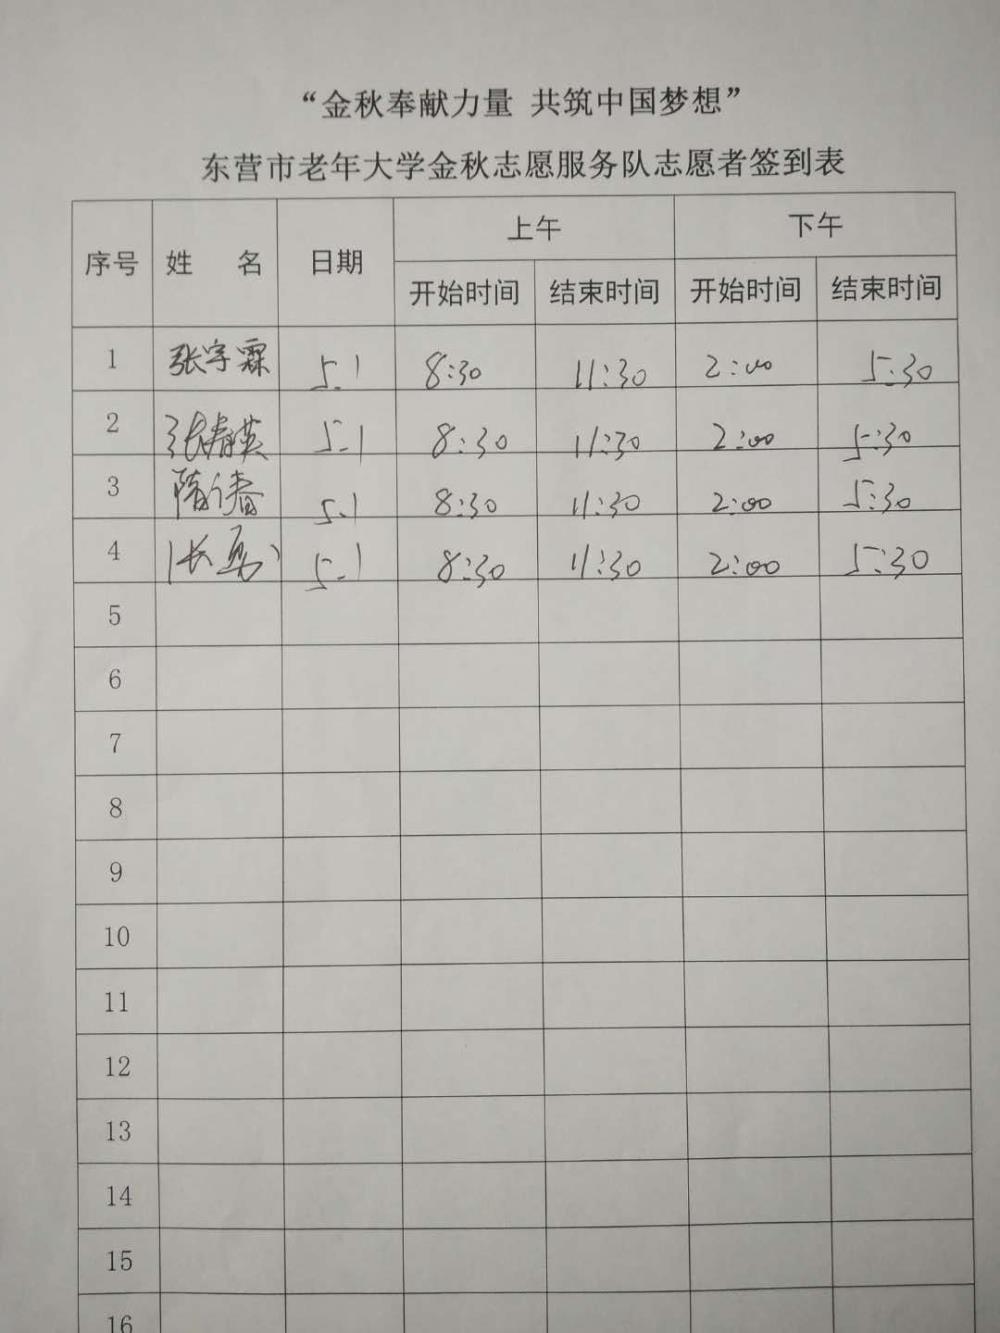 “金秋奉献力量 共筑中国梦想”
东营市老年大学金秋志愿服务队志愿者签到表
序号 姓 名 日期 上午 下午
开始时间 结束时间 开始时间 结束时间
1 张宇霖 5.1 8:30 11:30 2:00 5:30
2 张春英 5.1 8:30 11:30 2:00 5:30
3 隋 春 5.1 8:30 11:30 2:00 5:30
4 张 5.1 8:30 11:30 2:00 5:30
5
6
7
8
9
10
11
12
13
14
15
16